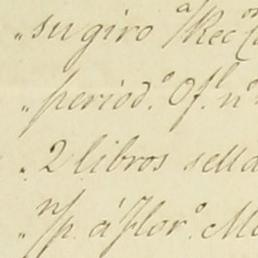 „ sugiro a/ Rec.on
„ period.o Of.l n.o
„ 2 libros sella
„ n/p. á Flor.o Ma